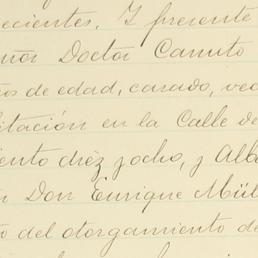 ecientes. Y presente
Doctor Canuto
os de edad, casado, vec
itación en la Calle de
iento diéz y ocho, y Alb
Don Enrique Mül
o del otorgamiento de